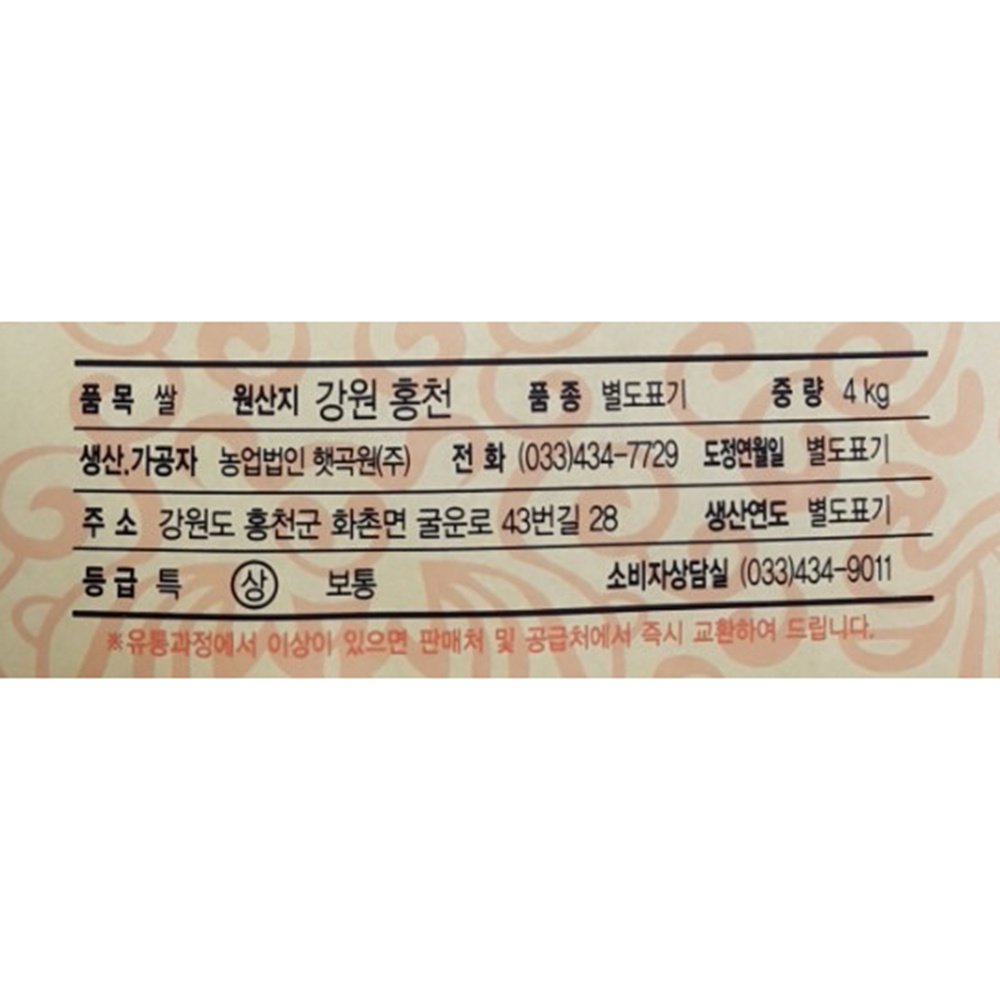 품 목 쌀 원산지 강원 홍천 품 종 별도표기 중 량 4 kg
생산.가공자 농업법인 햇곡원(주) 전 화 (033)434-7729 도정연월일 별도표기
주 소 강원도 홍천군 화촌면 굴운로 43번길 28 생산연도 별도표기
등 급 특 상 보통 소비자상담실 (033)434-9011
※유통과정에서 이상이 있으면 판매처 및 공급처에서 즉시 교환하여 드립니다.